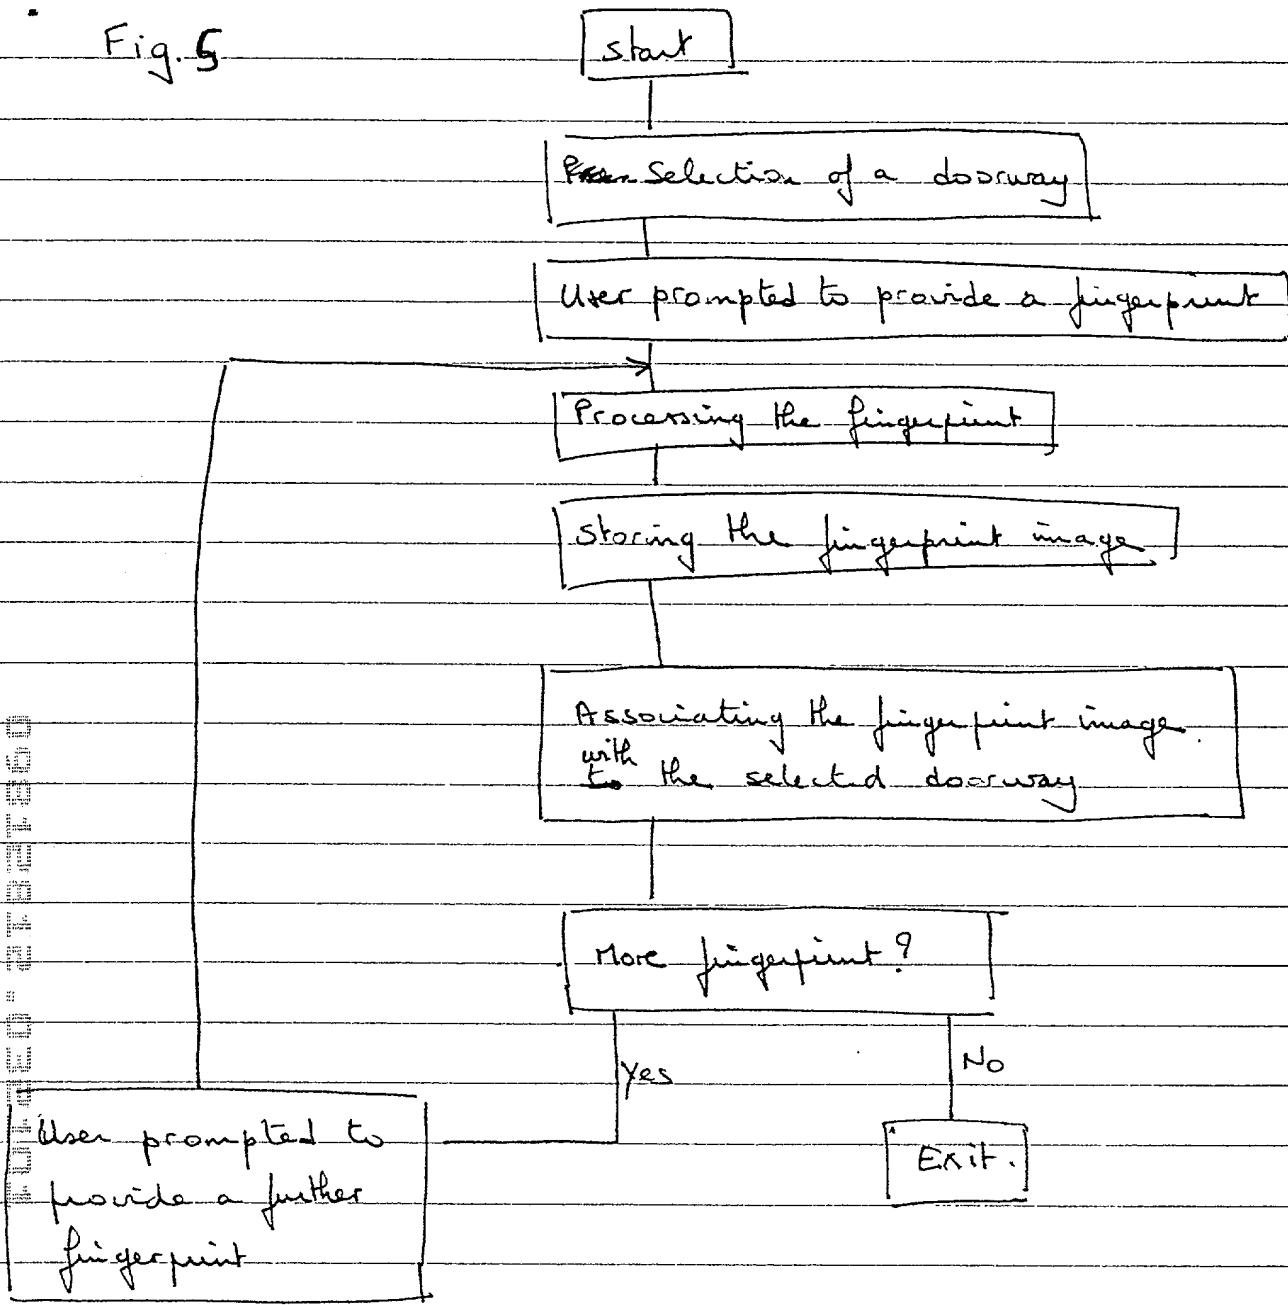 Fig. 5
start
Selection of a doorway
User prompted to provide a fingerprint
Processing the fingerprint
Storing the fingerprint image
Associating the fingerprint image
with
to the selected doorway
More fingerprint?
Yes
No
User prompted to
provide a further
fingerprint
Exit.